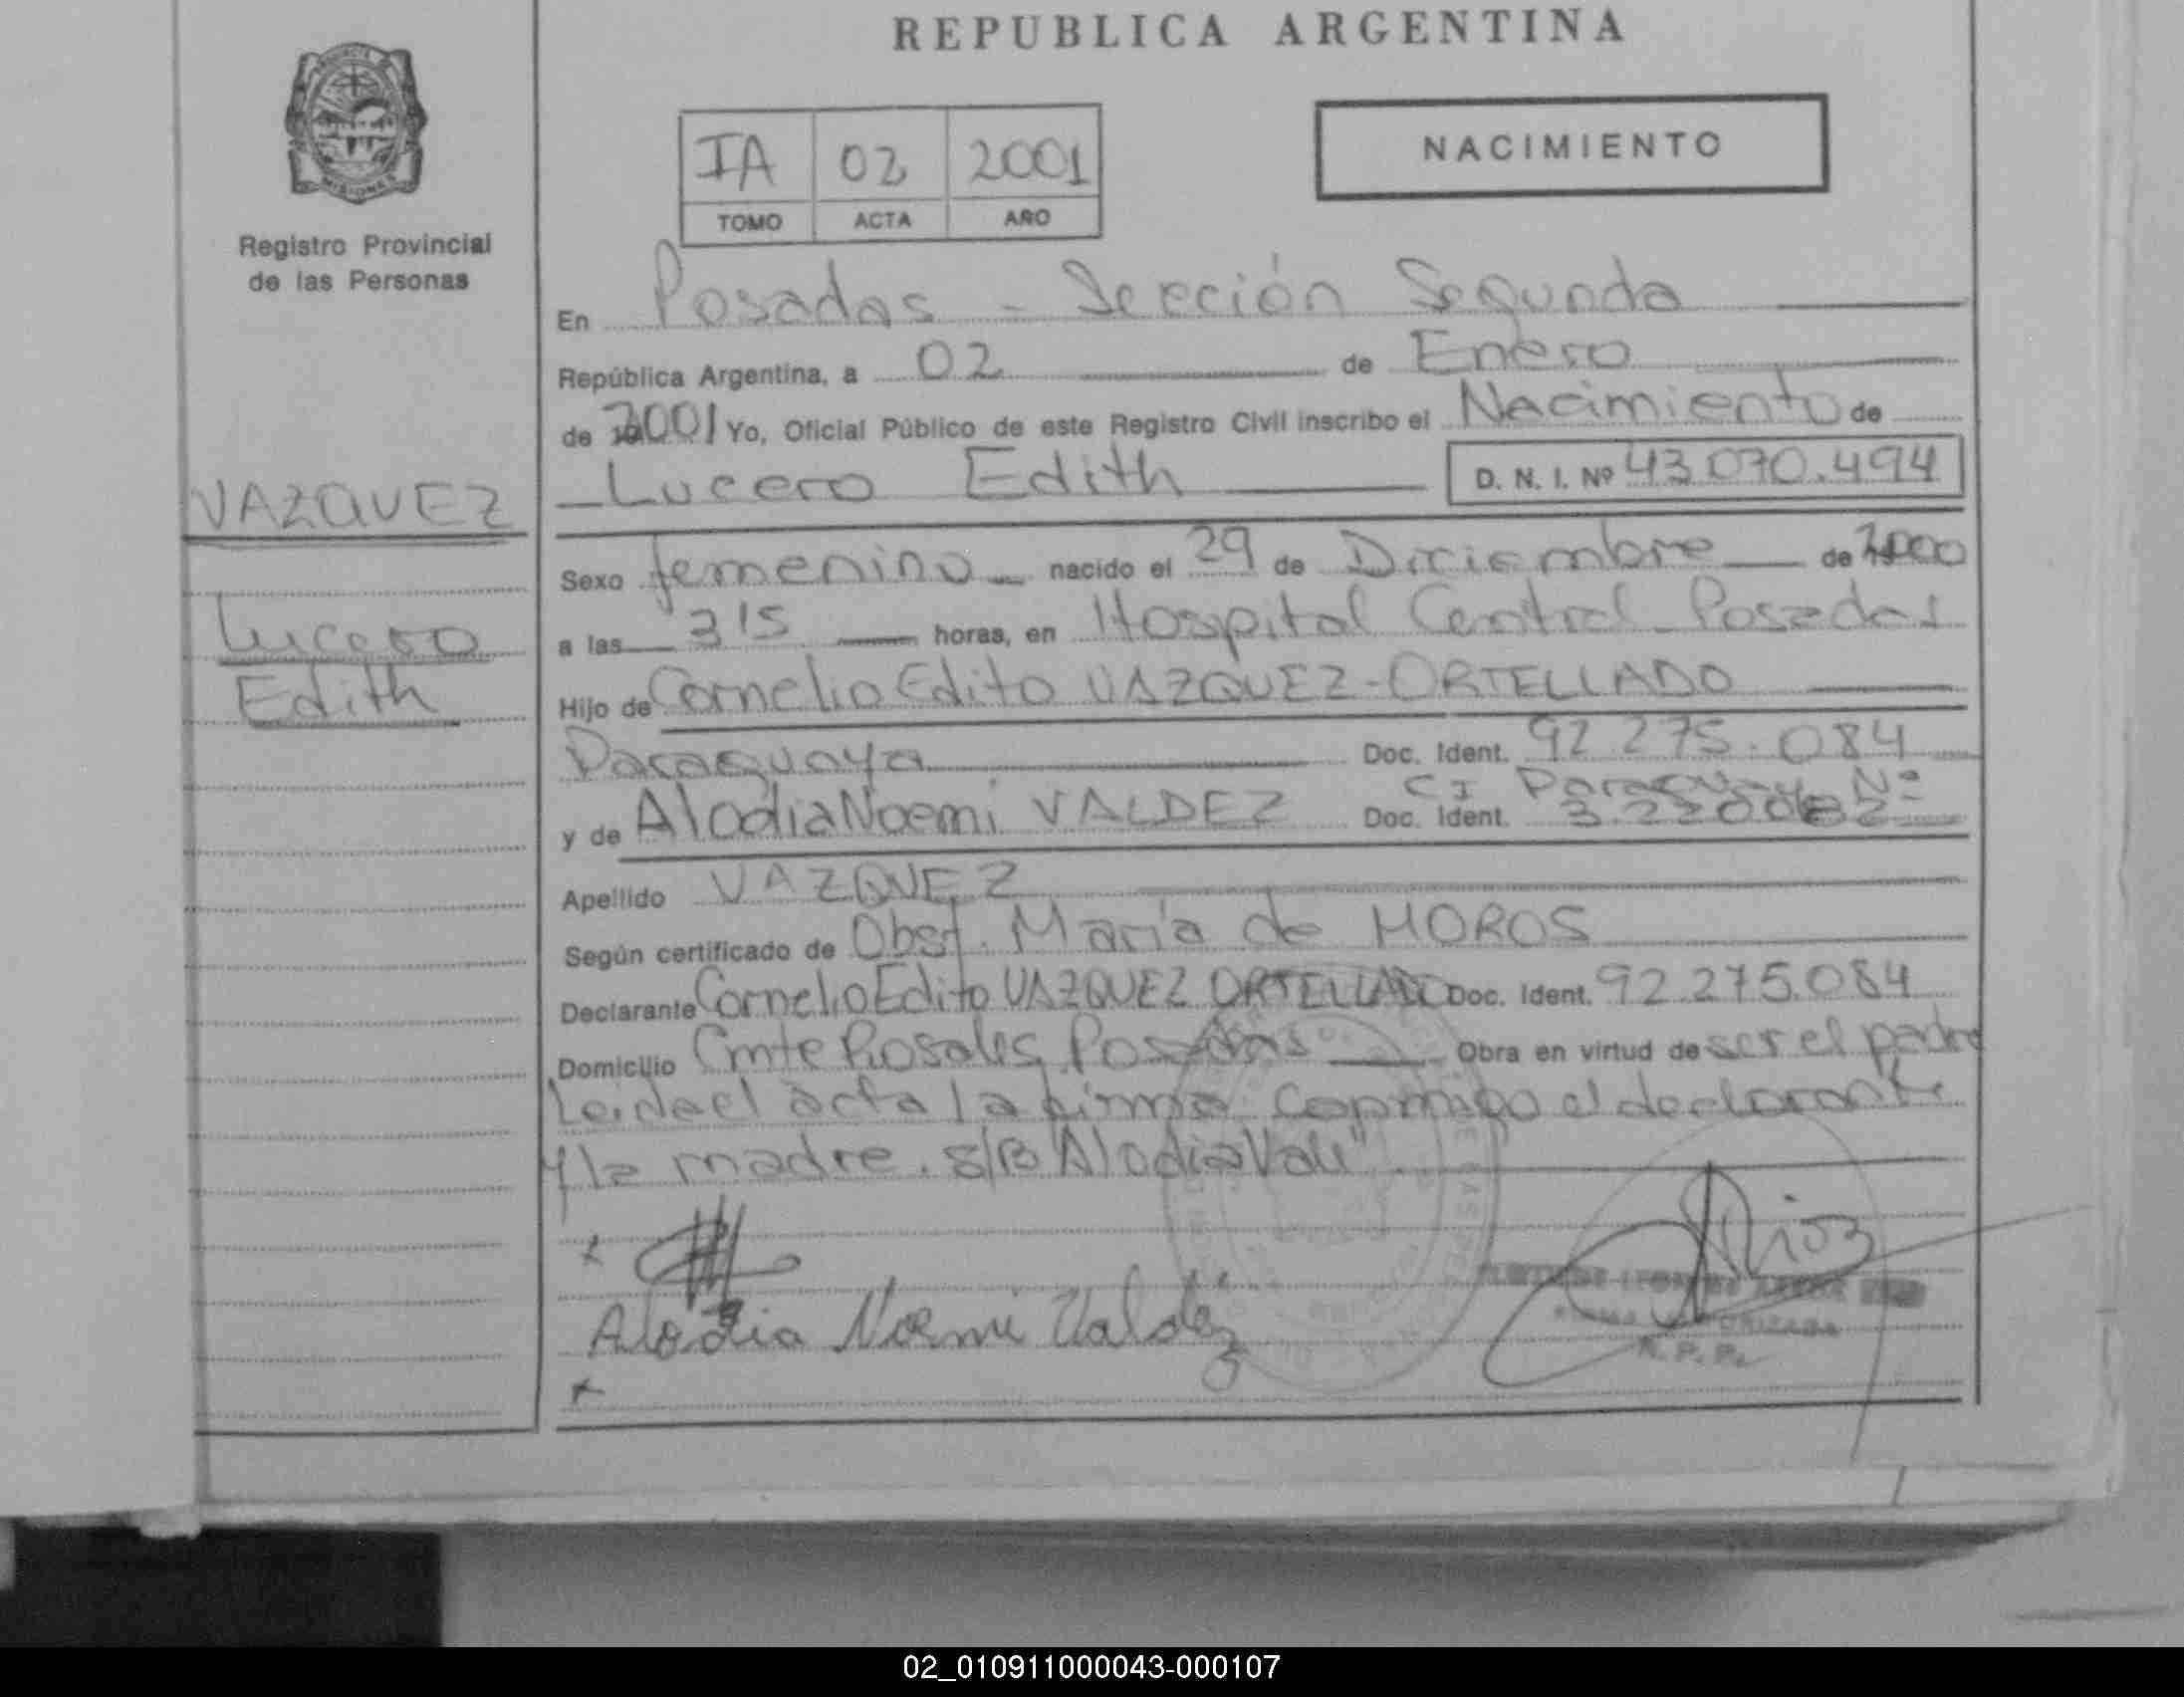 REPUBLICA ARGENTINA
PROVINCIA DE
MISIONES
Registro Provincial
de las Personas
IA 02 2001
TOMO ACTA AÑO
NACIMIENTO
En Posadas - Sección Segunda
República Argentina, a 02 de Enero
de 2001 Yo, Oficial Público de este Registro Civil inscribo el Nacimiento de
Lucero Edith D. N. I. Nº 43.070.494
VAZQUEZ
Lucero
Edith
Sexo femenino nacido el 29 de Diciembre de 2000
a las 315 horas, en Hospital Central Posadas
Hijo de Cornelio Edito VAZQUEZ-ORTELLADO
Paraguaya Doc. Ident. 92 275.084
CI Paraguay Nº
y de Alodia Noemi VALDEZ Doc. Ident.
Apellido VAZQUEZ
Según certificado de Obst. Maria de MOROS
Declarante Cornelio Edito VAZQUEZ ORTELLADO Doc. Ident. 92.275.084
Domicilio Cmte Rosales Posadas Obra en virtud de ser el padre
Leida el acta la firma conmigo el declarante
y la madre. s/B Alodia Val"
Rios
Alodia Noemi Valdez
FIRMA AUTORIZADA
R. P. P.
02_010911000043-000107